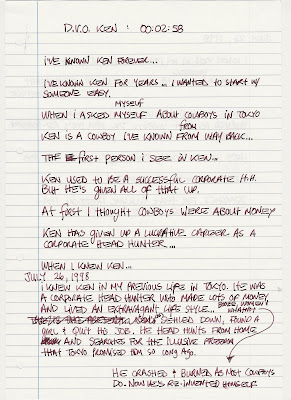 D.V.O. KEN : 00:02:58
I'VE KNOWN KEN FOREVER...
I'VE KNOWN KEN FOR YEARS... I WANTED TO START W/
SOMEONE EASY.
MYSELF
WHEN I ASKED MYSELF ABOUT COWBOYS IN TOKYO
FROM
KEN IS A COWBOY I'VE KNOWN FROM WAY BACK...
THE FIRST PERSON I SEE IN KEN...
KEN USED TO BE A SUCCESSFUL CORPORATE H.H.
BUT HE'S GIVEN ALL OF THAT UP.
AT FIRST I THOUGHT COWBOYS WERE ABOUT MONEY
KEN HAD GIVEN UP A LUCRATIVE CAREER AS A
CORPORATE HEAD HUNTER...
WHEN I KNEW KEN...
JULY 26, 1998
I KNEW KEN IN MY PREVIOUS LIFE IN TOKYO. HE WAS
A CORPORATE HEAD HUNTER WHO MADE LOTS OF MONEY
AND LIVED AN EXTRAVAGANT LIFE STYLE...
BOOZE, WOMEN &
WHATNOT
SETTLED DOWN, FOUND A
GIRL & QUIT HIS JOB. HE HEAD HUNTS FROM HOME
AND SEARCHES FOR THE ILLUSIVE PROGRAM
THAT TOKYO PROMISED HIM SO LONG AGO.
HE CRASHED & BURNED AS MOST COWBOYS
DO. NOW HE'S RE-INVENTED HIMSELF